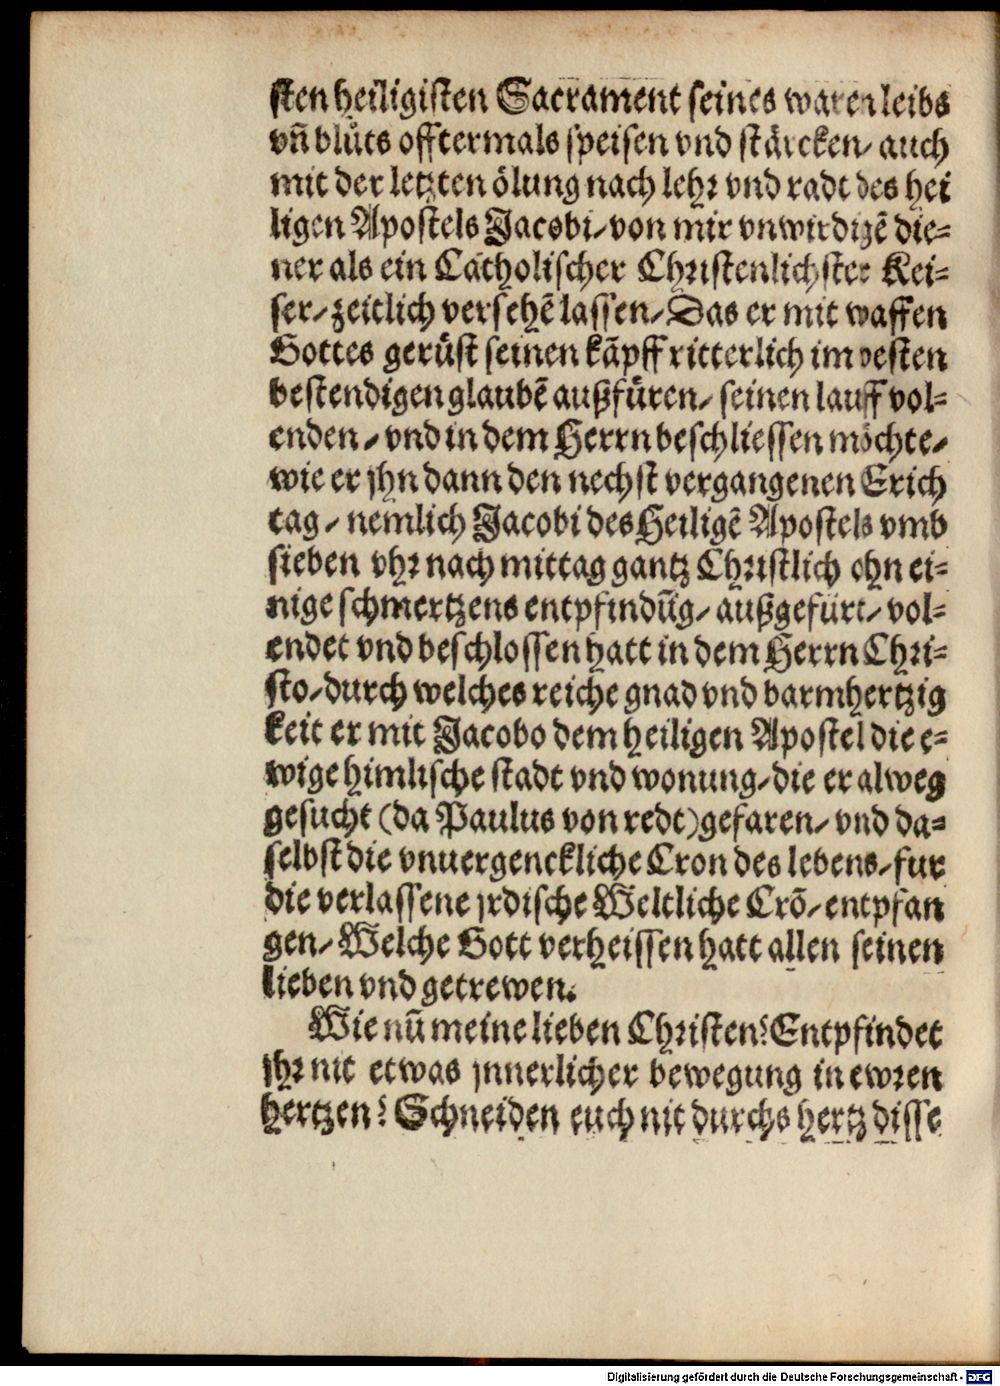 sten heiligisten Sacrament seines waren leibs
vñ blůts offtermals speisen vnd stärcken/ auch
mit der letzten ölung nach lehr vnd radt des hei
ligen Apostels Jacobi/ von mir vnwirdigẽ die-
ner als ein Catholischer Christenlichster Kei-
ser/ zeitlich versehẽ lassen/ Das er mit waffen
Gottes gerüst seinen kãpff ritterlich im vesten
bestendigen glaubẽ außfüren/ seinen lauff vol-
enden/ vnd in dem Herrn beschliessen möchte/
wie er jhn dann den nechst vergangenen Erich
tag/ nemlich Jacobi des Heiligẽ Apostels vmb
sieben vhr nach mittag gantz Christlich ohn ei-
nige schmertzens entpfindũg/ außgefürt/ vol-
endet vnd beschlossen hatt in dem Herrn Chri-
sto/ durch welches reiche gnad vnd barmhertzig
keit er mit Jacobo dem heiligen Apostel die e-
wige himlische stadt vnd wonung/ die er alweg
gesucht (da Paulus von redt) gefaren/ vnd da-
selbst die vnuergenckliche Cron des lebens/ fur
die verlassene jrdische Weltliche Crõ/ entpfan
gen/ Welche Gott verheissen hatt allen seinen
lieben vnd getrewen.
Wie nũ meine lieben Christen? Entpfindet
jhr nit etwas jnnerlicher bewegung in ewren
hertzen? Schneiden euch nit durchs hertz disse
Digitalisierung gefördert durch die Deutsche Forschungsgemeinschaft - DFG